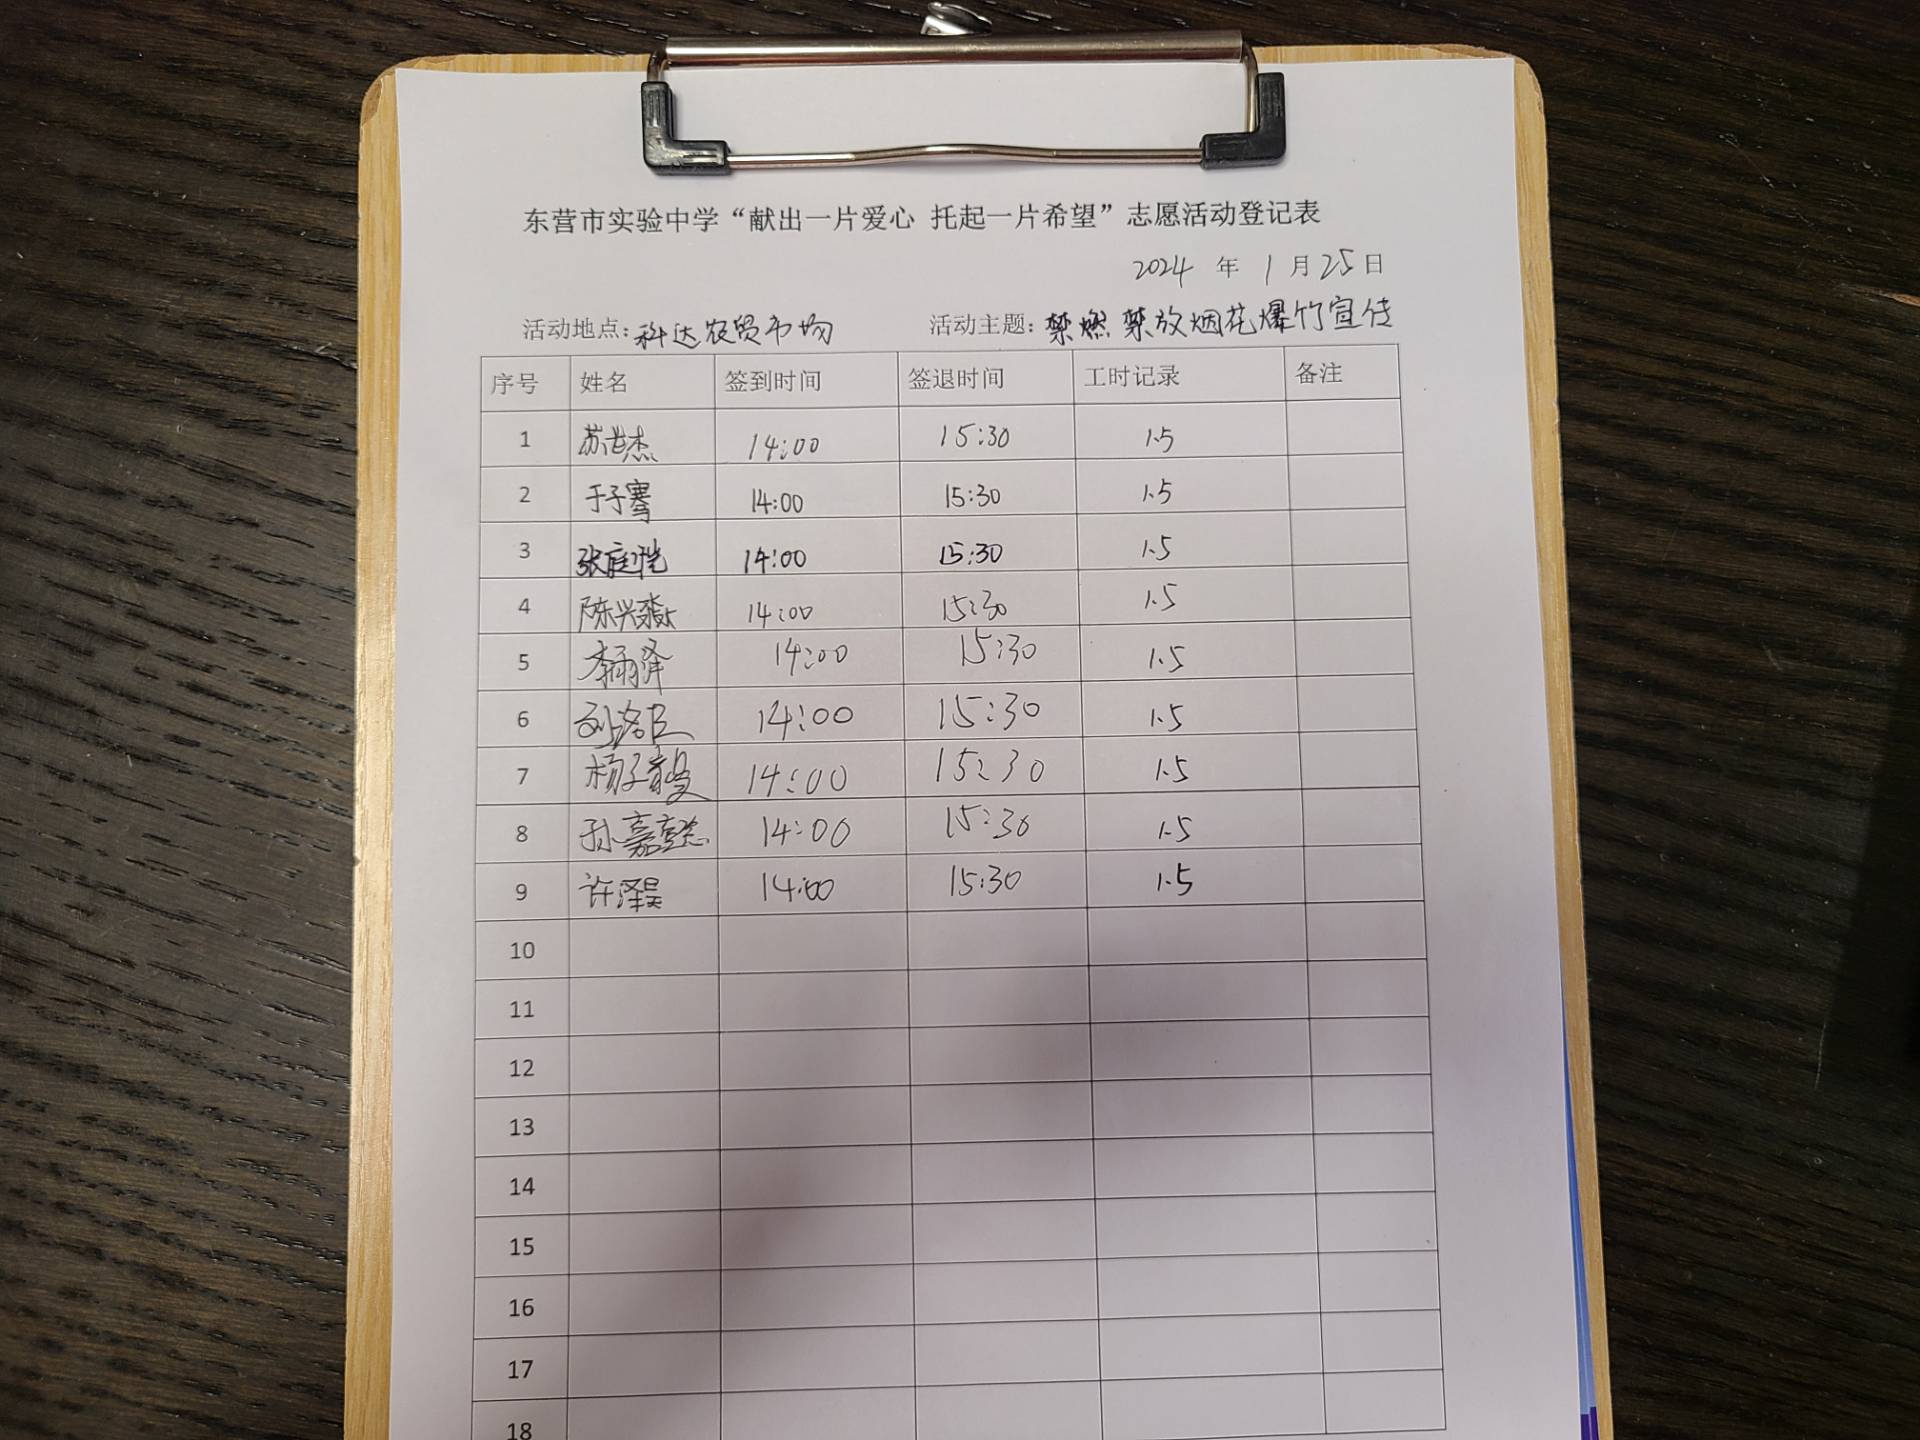 东营市实验中学“献出一片爱心 托起一片希望”志愿活动登记表
2024 年 1 月 25 日
活动地点：科达农贸市场 活动主题：禁燃禁放烟花爆竹宣传
序号 姓名 签到时间 签退时间 工时记录 备注
1 苏世杰 14:00 15:30 1.5
2 于子骞 14:00 15:30 1.5
3 张庭恺 14:00 15:30 1.5
4 陈兴 14:00 15:30 1.5
5 李雨泽 14:00 15:30 1.5
6 刘 14:00 15:30 1.5
7 杨子 14:00 15:30 1.5
8 孙嘉懿 14:00 15:30 1.5
9 许泽昊 14:00 15:30 1.5
10
11
12
13
14
15
16
17
18